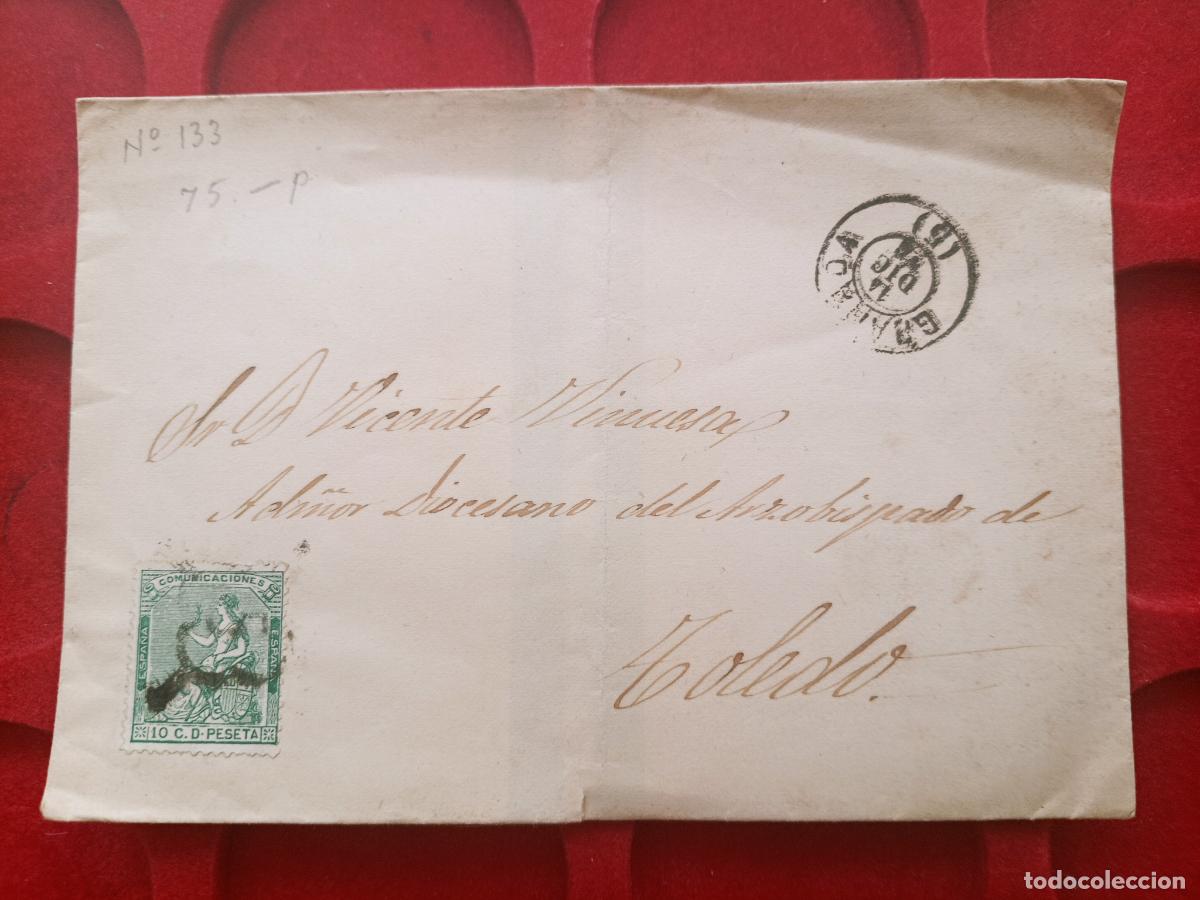 Nº 133
75.—p
GRANADA
(9)
14
DIC
Sr D Vicente Vinuesa
Admñor Diocesano del Arzobispado de
Toledo.
COMUNICACIONES
ESPAÑA
ESPAÑA
10 C. D. PESETA
todocoleccion